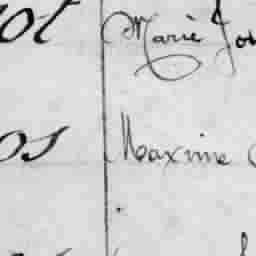 ot Marie Jo
os Maxime